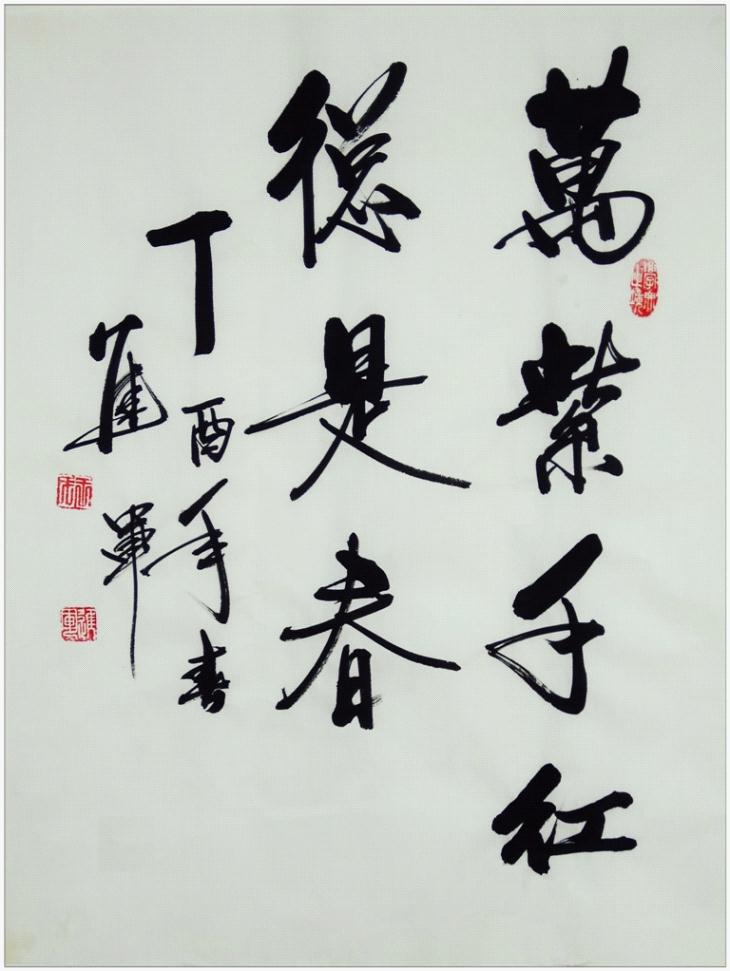 萬紫千紅
總是春
丁酉年春
進軍